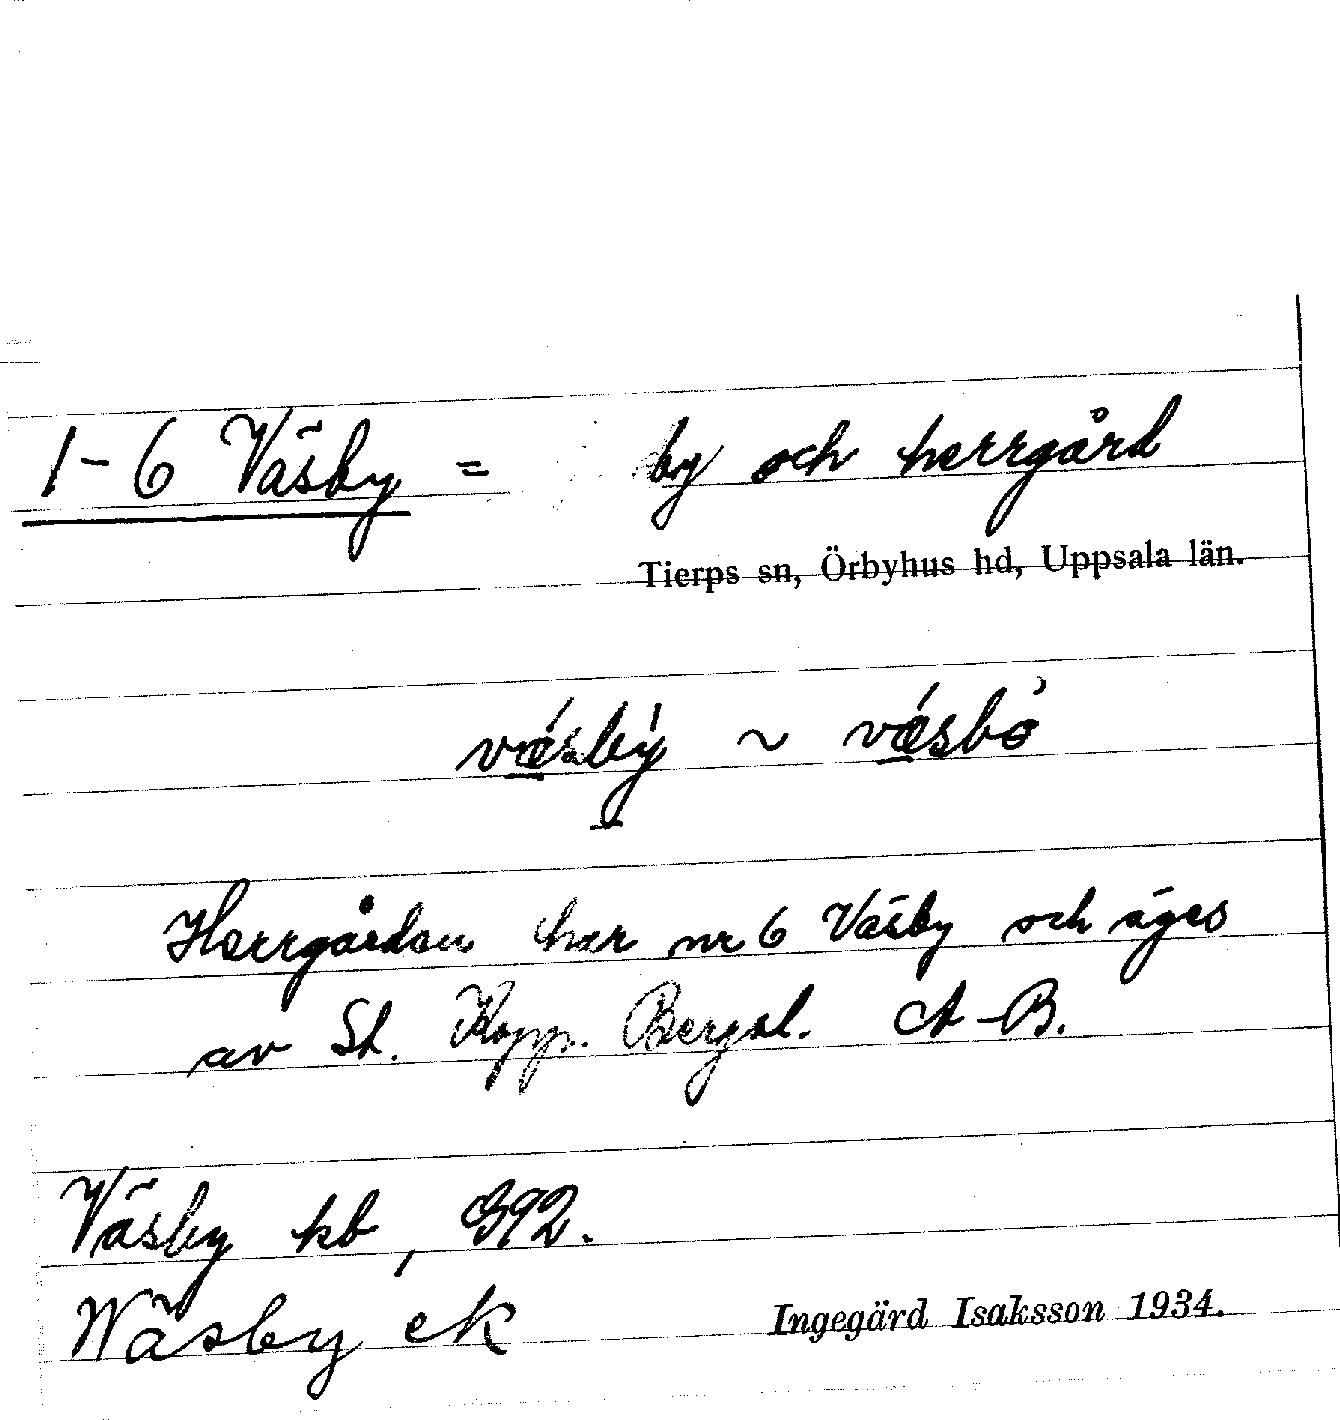 1-6 Väsby = by och herrgård
Tierps sn, Örbyhus hd, Uppsala län.
vǽsbý ~ vǽsbò
Herrgården har nr 6 Väsby och äges
av St. Kopp. Bergsl. A-B.
Väsby kb, 392.
Wäsby ek
Ingegärd Isaksson 1934.